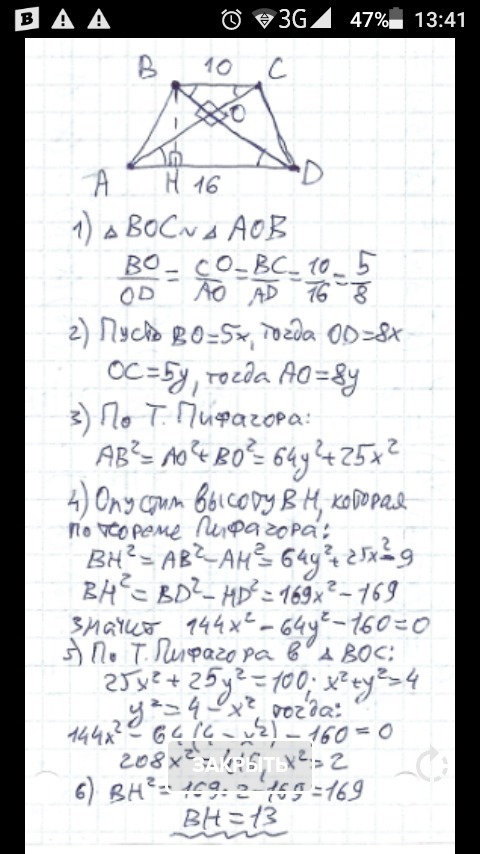 B 3G 47% 13:41
B 10 C
O
A H 16 D
1) △BOC ~ △AOB
BO/OD = CO/AO = BC/AD = 10/16 = 5/8
2) Пусть BO=5x, тогда OD=8x
OC=5y, тогда AO=8y
3) По Т. Пифагора:
AB²=AO²+BO²=64y²+25x²
4) Опустим высоту BH, которая
по теореме Пифагора:
BH²=AB²-AH²=64y²+25x²-9
BH²=BD²-HD²=169x²-169
значит 144x²-64y²-160=0
5) По Т. Пифагора в △BOC:
25x²+25y²=100; x²+y²=4
y²=4-x², тогда:
144x²-64(4-x²)-160=0
208x² x²=2
ЗАКРЫТЬ
6) BH²=169·2-169=169
BH=13